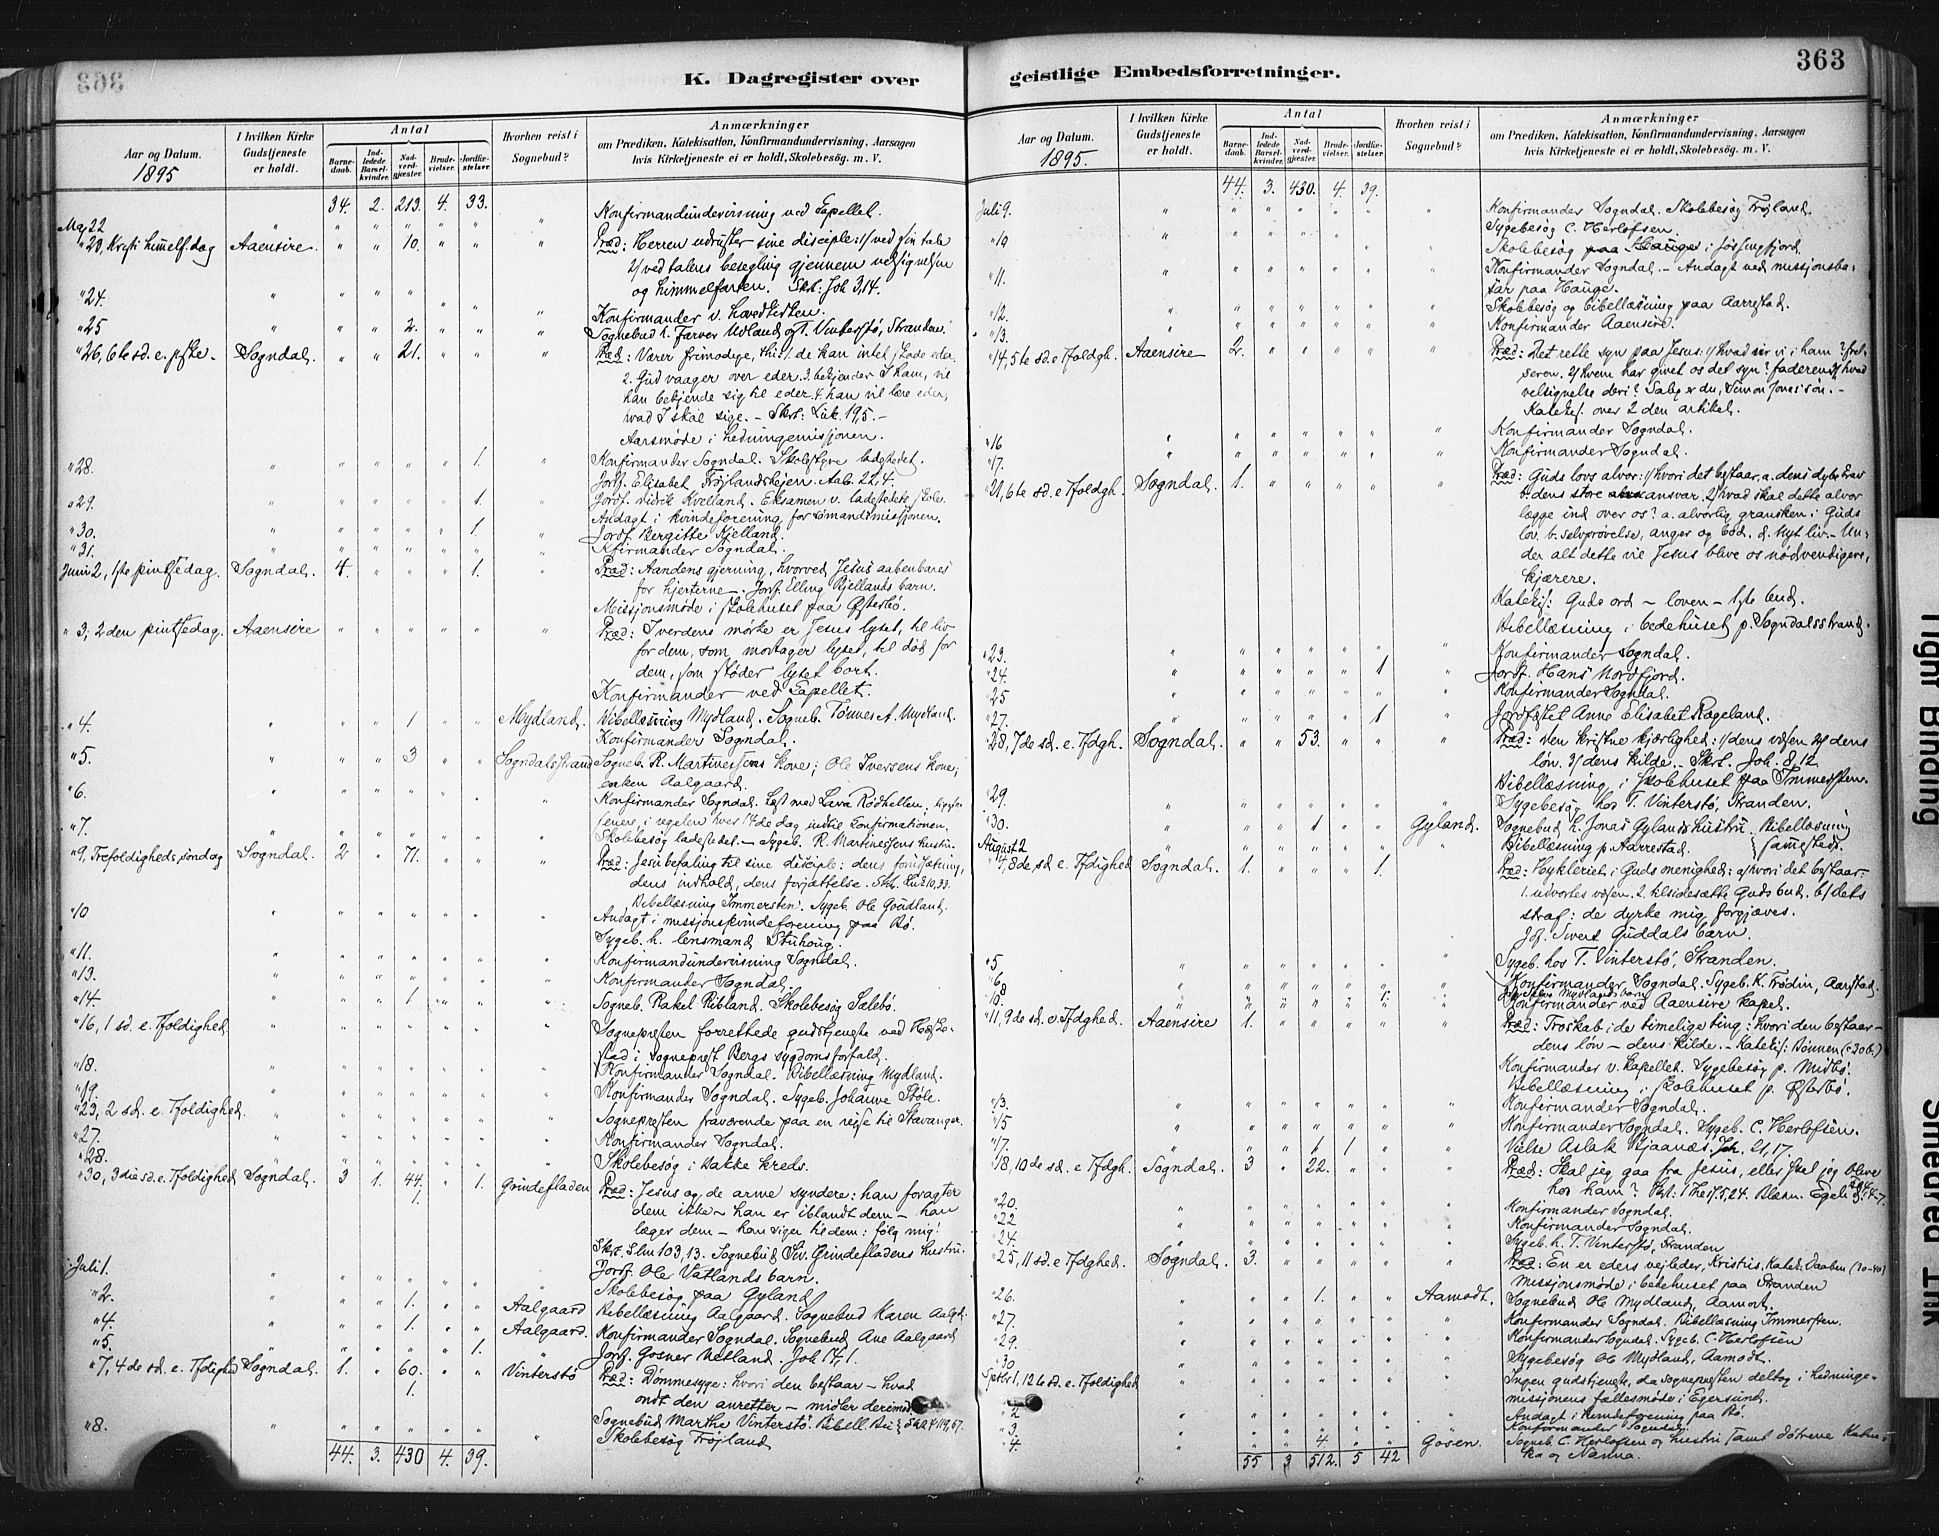 363
K. Dagregister over
geistlige Embedsforretninger.
Aar og Datum.
1895
I hvilken Kirke
Gudstjeneste
er holdt.
Antal
Barne-
daab.
Ind-
ledede
Barsel-
kvinder.
Nad-
verd-
gjæster.
Brude-
vielser.
Jordfæ-
stelser.
Hvorhen reist i
Sognebud?
Anmærkninger
om Prædiken, Katekisation, Konfirmandundervisning, Aarsagen
hvis Kirketjeneste ei er holdt, Skolebesøg. m. V.
34. 2. 213. 4. 33.
May 22 " " " " " " " Konfirmandundervisning ved Capellet.
"23, Kristi himmelf.dag Aaensire. " " 10. " " " Præd: Herren udruster sine disciple: 1/ ved sin tale
2/ ved talens besegling gjennem velsignelsen
og himmelfarten. Skr: Joh 3,14.
"24. " " " " " " " Konfirmander v. hovedkirken.
"25 " " " 2. " " " Sognebud h. Farver Udland og T. Vinterstø, Stranden.
"26, 6te sd. e. pske. Sogndal. " " 21. " " " Præd: Værer frimodige, thi: 1/ de kan intet skade eder.
2. Gud vaager over eder. 3. bekjender I ham, vil
han bekjende sig til eder. 4. han vil lære eder,
hvad I skal sige. - Skr: Luk. 19,5. -
Aarsmøde i hedningemissjonen.
"28. " " " " " 1. " Konfirmander Sogndal. Skolestyre ladestedet.
Jordf. Elisabet Frøjlandshejen. Aab. 22,4.
"29. " " " " " 1. " Jordf. Didrik Kvelland. Eksamen v. ladestedets skole.
Andagt i kvindeforening for sømandsmissjonen.
"30. " " " " " 1. " Jordf. Bergitte Kjelland.
"31. " " " " " " " Kfirmander Sogndal.
Juni 2, 1ste pintsedag. Sogndal. 4. " " " 1. " Præd: Aandens gjerning, hvorved Jesus aabenbares
for hjerterne. Jorf. Elling Kjellands barn.
Missjonsmøde i skolehuset paa Østerbø.
"3, 2den pintsedag. Aaensire " " " " " " Præd: I verdens mørke er Jesus lyset, til liv
for dem, som modtager lyset, til død for
dem, som støder lyset bort.
Konfirmander ved Capellet.
"4. " " " 1 " " Mydland. Bibellæsning Mydland. Sogneb. Tønnes A. Mydland.
Konfirmander Sogndal.
"5. " " " 3 " " Sogndalsstrand Sogneb. R. Martinessens kone; Ole Iversens kone;
enken Aalgaard.
"6. " " " " " " " Konfirmander Sogndal. Læst med Lava Rødhellen,
senere, i regelen hver 14de dag indtil Confirmationen.
"7. " " " " " " " Skolebesøg ladestedet. - Sygeb. R. Martinessens hustru.
"9, Trefoldigheds søndag Sogndal. 2 " 71. " " " Præd: Jesu befaling til sine disciple: dens forudsætning,
dens indhold, dens forjættelse. Skr. Luk 10,33.
Bibellæsning Immersten. Sygeb. Ole Guddal.
"10 " " " " " " " Andagt i missjonskvindeforening paa Bø.
Sygeb. h. lensmand Stuhoug.
"11. " " " " " " " Konfirmandundervisning Sogndal.
"13. " " " " " " " Konfirmander Sogndal.
"14. " " " 1 " " " Sogneb. Rakel Ribland. Skolebesøg Sælebø.
"16, 1 sd. e. Tfoldighed. " " " " " " " Sognepresten forrettede gudstjeneste ved
i sogneprest Bergs sygdomsforfald.
"18. " " " " " " " Konfirmander Sogndal. Bibellæsning Mydland.
"19. " " " " " " " Konfirmander Sogndal. Sygeb. Johanne Støle.
"23, 2 sd. e. Tfoldighed. " " " " " " " Sognepresten fraværende paa en rejse til Stavanger.
"27. " " " " " " " Konfirmander Sogndal.
"28. " " " " " " " Skolebesøg i Bakke kreds.
"30, 3die sd. e. Tfoldighed Sogndal. 3 1. 44. " 1. Grindefladen Præd: Jesus og de arme syndere: han foragter
1.
dem ikke - han er iblandt dem - han
læger dem - han siger til dem: følg mig!
Skr. Slm 103,13. Sognebud Sv. Grindefladens hustru.
Jordf. Ole Vatlands barn.
Juli 1. " " " " " " " Skolebesøg paa Gyland
"2. " " " 1. " " Aalgaard Bibellæsning Aalgaard. Sognebud Karen Aalgd.
"4. " " " 1. " " Aalgaard. Konfirmander Sogndal. Sognebud Ane Aalgaard
"5. " " " " " 1. " Jordf. Gosner Netland. Joh 14,1.
"7, 4de sd. e. Tfoldighed Sogndal. 1. " 60. " " Vinterstø Præd: Dømmesyge: hvori den bestaar - hvad
1.
ondt den anretter - midler derimod.
Sognebud Marthe Vinterstø.
"8. " " " " " " " Skolebesøg Frøjland
44. 3. 430 4. 39.
363
Aar og Datum.
1895.
I hvilken Kirke
Gudstjeneste
er holdt.
Antal
Barne-
daab.
Ind-
ledede
Barsel-
kvinder.
Nad-
verd-
gjæster.
Brude-
vielser.
Jordfæ-
stelser.
Hvorhen reist i
Sognebud?
Anmærkninger
om Prædiken, Katekisation, Konfirmandundervisning, Aarsagen
hvis Kirketjeneste ei er holdt, Skolebesøg. m. V.
44. 3. 430. 4. 39.
Juli 9. " " " " " " " Konfirmander Sogndal. Skolebesøg Frøjland.
"10 " " " " " " " Sygebesøg C. Herlofsen.
Skolebesøg paa Hauge i Jøssingfjord.
"11. " " " " " " " Konfirmander Sogndal. - Andagt ved missjonsba-
sar paa Hauge.
"12. " " " " " " " Skolebesøg og bibellæsning paa Aarrestad.
"13. " " " " " " " Konfirmander Aaensire.
"14, 5te sd. e. Tfoldgh. Aaensire 2. " " " " " Præd: Det rette syn paa Jesus: 1/ hvad ser vi i ham? frel-
seren. 2/ hvem har givet os det syn? faderen 3/ hvad
velsignelse deri? Salig er du, Simon Jonas søn. -
Katekis. over 2den artikel.
"16 " " " " " " " Konfirmander Sogndal.
"17. " " " " " " " Konfirmander Sogndal.
"21, 6te sd. e Tfoldgh. Sogndal. 1. " " " " " Præd: Guds lovs alvor: 1/ hvori det bestaar, a. dens dybe krav
b. dens store ansvar. 2/ hvad skal dette alvor
lægge ind over os? a. alvorlig gransken i Guds
lov. b. selvprøvelse, anger og bod. c. Nyt liv. - Un-
der alt dette vil Jesus blive os nødvendigere,
kjærere.
Katekis: Guds ord - loven - 1ste bud.
Bibellæsning i bedehuset p. Sogndalsstrand.
"23. " " " " " " " Konfirmander Sogndal.
"24. " " " " " 1 " Jordf. Hans Nordfjord.
"25 " " " " " " " Konfirmander Sogndal.
"27. " " " " " 1 " Jordfæstet Anne Elisabet Rægeland.
"28, 7de sd. e. Tfdgh. Sogndal. " " 53. " " " Præd: Den kristne kjærlighed: 1/ dens væsen 2/ dens
løn. 3/ dens kilde. - Skr. Joh. 8,12.
Bibellæsning i skolehuset paa Immersten.
"29. " " " " " " " Sygebesøg hos T. Vinterstø, Stranden.
"30. " " " 1 " " Gyland. Sognebud h. Jonas Gylands hustru. Bibellæsning
samesteds.
August 2 " " " " " " " Bibellæsning p. Aarrestad.
"4, 8de sd. e. Tfdighed Sogndal. 1. " " " 1. " Præd: Hykleriet i Guds menighed: a/ hvori det bestaar.
1. udvortes væsen. 2. tilsidesætte Guds bud. b/ dets
straf: de dyrke mig forgjæves.
Jf. Sivert Guddals barn.
"5 " " " " " " " Sygeb. hos T. Vinterstø, Stranden.
"6 " " " " " " " Konfirmander Sogndal. Sygeb. K. Frødin, Aarstad.
"8
"10. " " " " " 1. " Konfirmander ved Aaensire kapel.
"11, 9de sd. e. Tfdghed. Aaensire 1. " " " " " Præd: Troskab i de timelige ting: hvori den bestaar -
dens løn - dens kilde. - Katekis: Bønnen (c 30 b.)
Konfirmander v. kapellet. Sygebesøg p. Midbø.
Bibellæsning i skolehuset p. Østerbø.
"13. " " " " " " " Konfirmander Sogndal.
"15 " " " " " " " Konfirmander Sogndal. Sygeb. C. Herlofsen.
"17. " " " 1 1 " " Vielse Aslak Kjaanæs. Joh. 21,17.
"18, 10de sd. e Tfdgh. Sogndal. 3 " 22. " " " Præd: Skal jeg gaa fra Jesus, eller skal jeg blive
hos ham? Skr: 1 Thes. 5,24.
"20. " " " " " " " Konfirmander Sogndal.
"22 " " " " " " " Konfirmander Sogndal.
"24. " " " " " " " Sygeb. h. T. Vinterstø, Stranden
"25, 11 sd. e Tfdghed. Sogndal. 3. " " " " " Præd: En er eders vejleder, Kristus. Katek. Daaben (30-40)
Missjonsmøde i bedehuset paa Stranden
"26. " " " 1. " " Aamodt. Sognebud Ole Mydland, Aamodt.
"27. " " " " " " " Konfirmander Sogndal. Bibellæsning Immersten.
"29. " " " " " " " Konfirmander Sogndal. Sygeb. C. Herlofsen
"30 " " " " " " " Sygebesøg Ole Mydland, Aamodt.
Sptbr 1, 12te sd. e. Tfoldighed " " " " " " Ingen gudstjeneste, da sognepresten deltog i hedninge-
missjonens fællesmøde i Egersund.
"2 " " " " " " " Andagt i kvindeforening paa Bø.
"3. " " " " " " " Konfirmander Sogndal.
"4. " " " 4 " " Gosen. Sogneb. C. Herlofsen og hustru samt døtrene Kathin-
ka og Nanna.
55 3 512. 5 42
Tight Binding
Smeared Ink